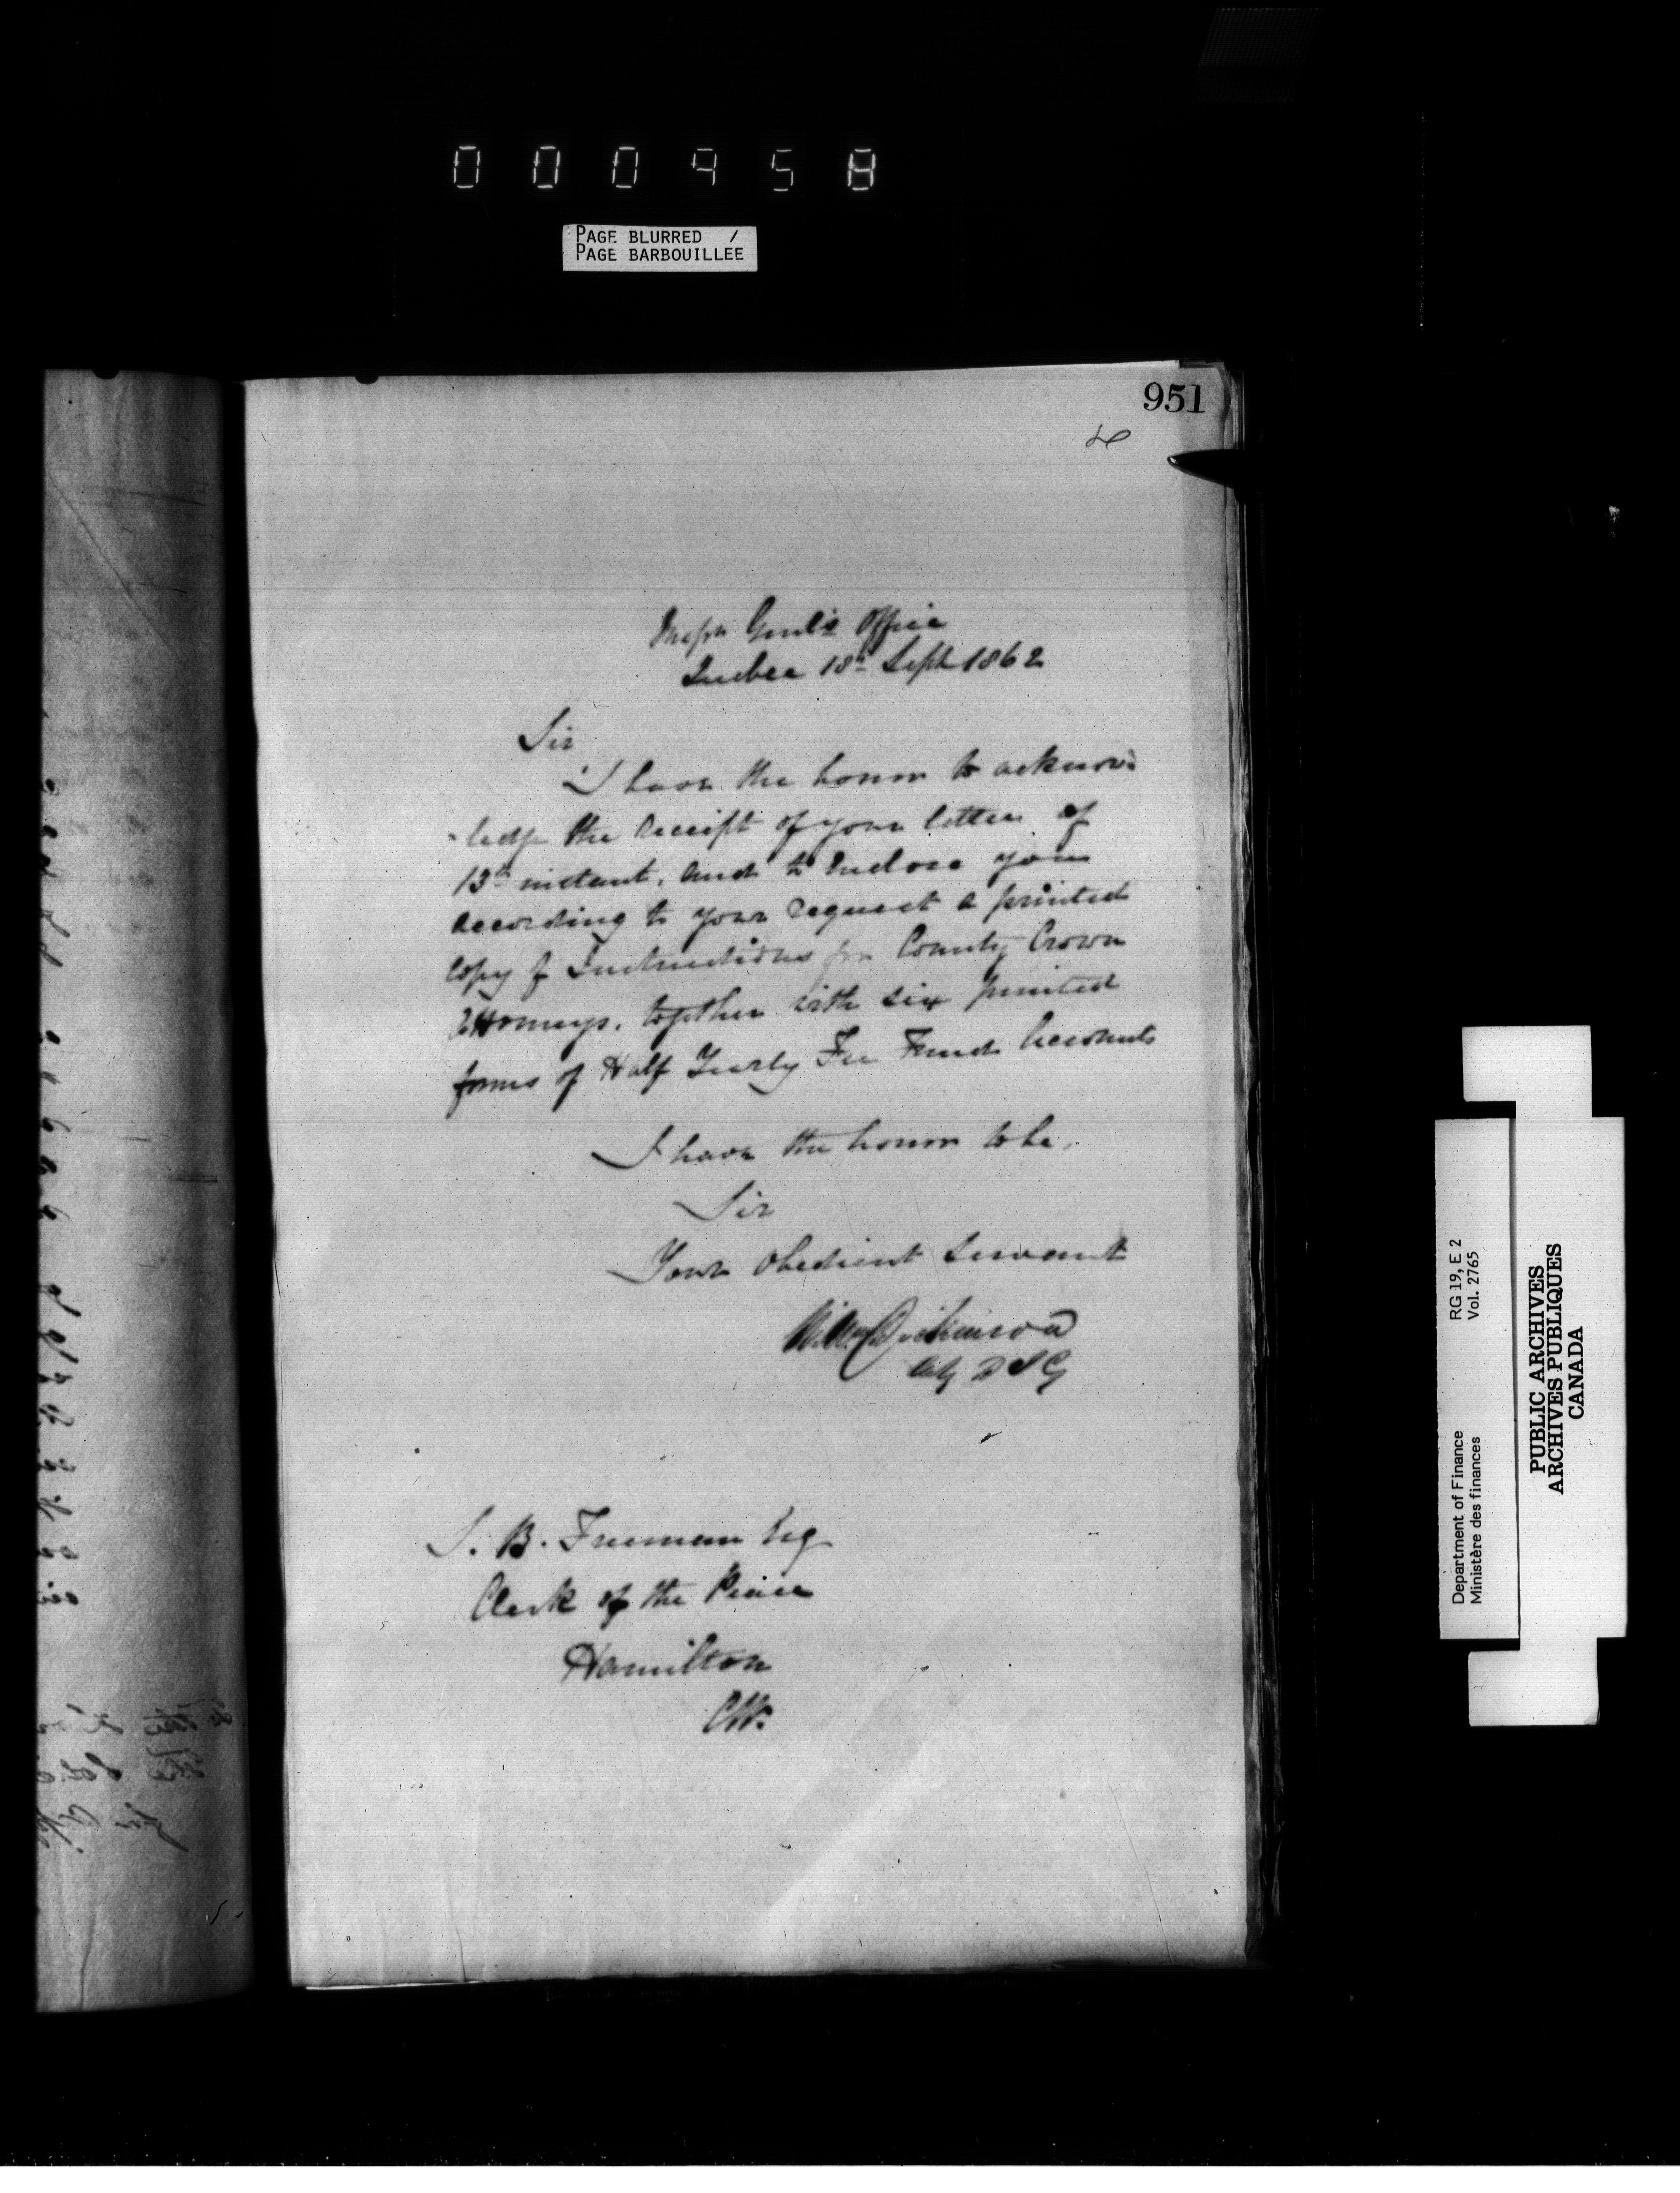 000958
PAGE BLURRED /
PAGE BARBOUILLEE
951
Insp̱n Genl's Office
Quebec 18th Sept 1862
Sir
I have the honor to acknow
-ledge the receipt of your letter of
13th instant, and to Enclose you
according to your request a printed
Copy of Instructions for County Crown
Attorneys, together with six printed
forms of Half Yearly Fee Fund Accounts
I have the honor to be,
Sir
Your Obedient Servant
Wm Dickinson
Actg D I G
S. B. Freeman Esq
Clerk of the Peace
Hamilton
CW.
Department of Finance RG 19, E 2
Ministère des finances Vol. 2765
PUBLIC ARCHIVES
ARCHIVES PUBLIQUES
CANADA